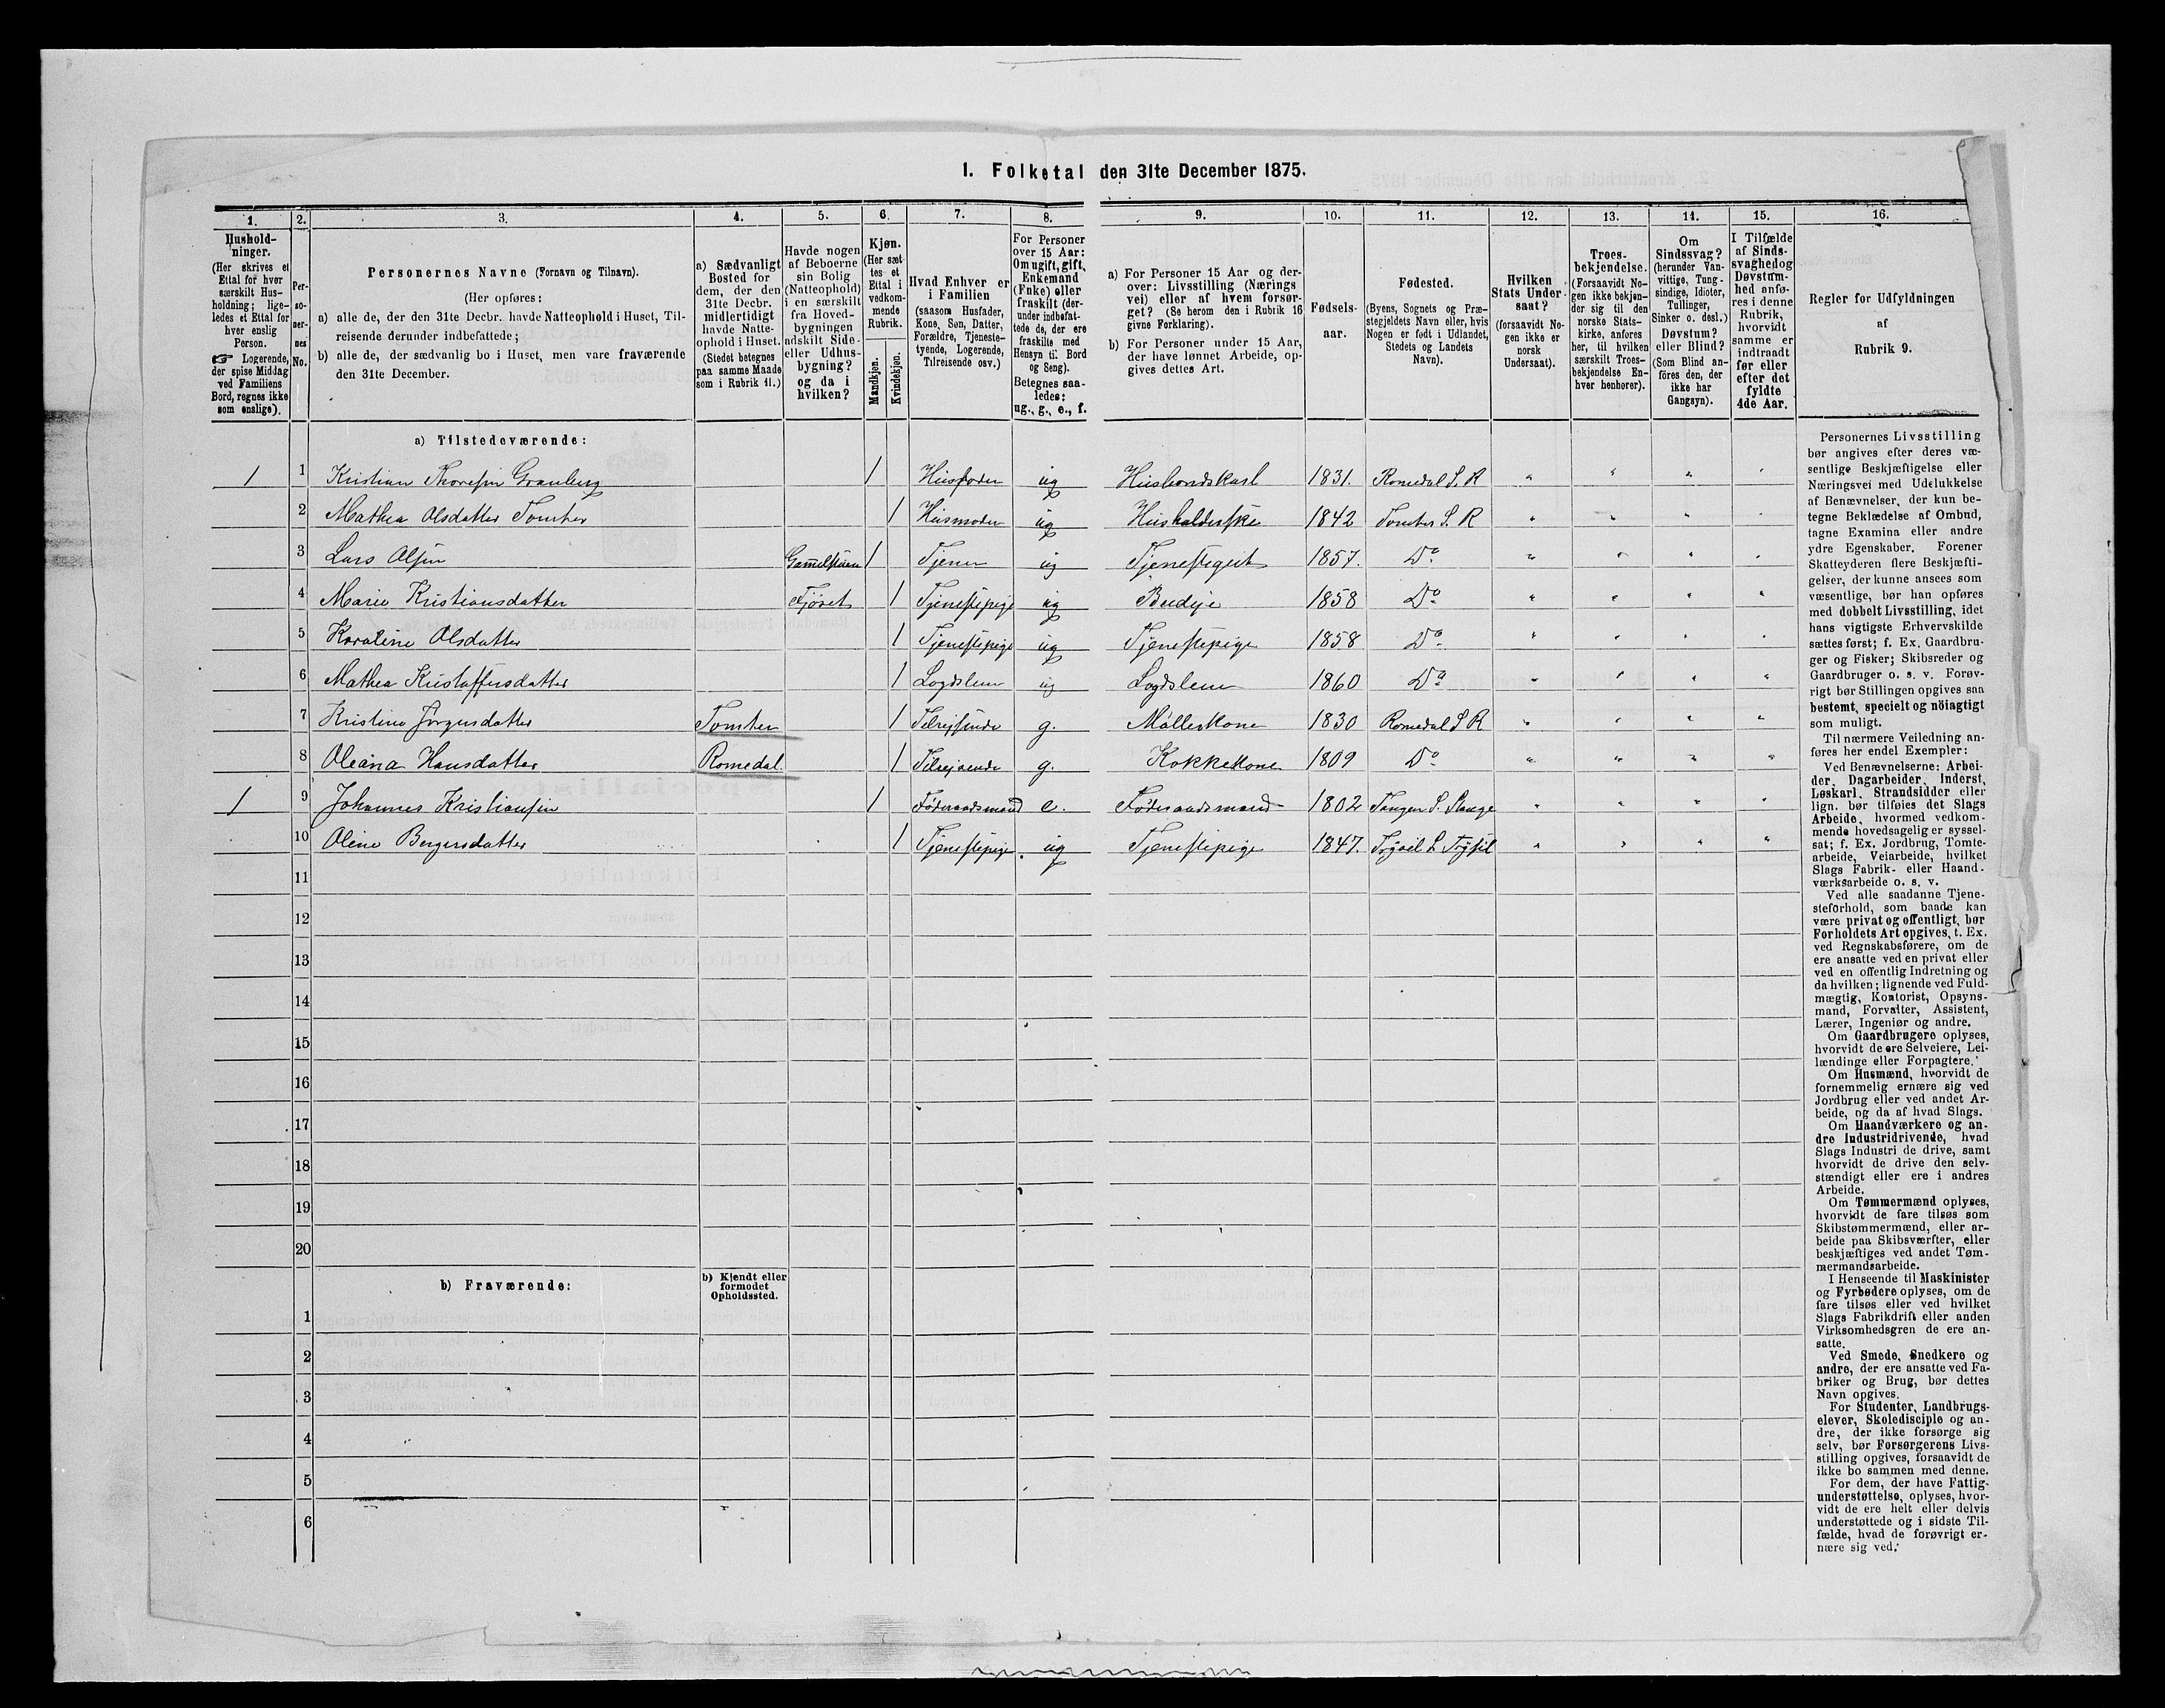 1. Folketal den 31te December 1875.
1. 2. 3. 4. 5. 6. 7. 8. 9. 10. 11. 12. 13. 14. 15. 16.
Hushold-
ninger.
(Her skrives et
Ettal for hver
særskilt Hus-
holdning; lige-
ledes et Ettal for
hver enslig
Person.
☞ Logerende,
der spise Middag
ved Familiens
Bord, regnes ikke
som enslige).
Per-
so-
ner-
nes
No.
Personernes Navne (Fornavn og Tilnavn).
(Her opføres:
a) alle de, der den 31te Decbr. havde Natteophold i Huset, Til-
reisende derunder indbefattede;
b) alle de, der sædvanlig bo i Huset, men vare fraværende
den 31te December.
a) Sædvanligt
Bosted for
dem, der den
31te Decbr.
midlertidigt
havde Natte-
ophold i Huset.
(Stedet betegnes
paa samme Maade
som i Rubrik 11.)
Havde nogen
af Beboerne
sin Bolig
(Natteophold)
i en særskilt
fra Hoved-
bygningen
adskilt Side-
eller Udhus-
bygning?
og da i
hvilken?
Kjøn.
(Her sæt-
tes et
Ettal i
vedkom-
mende
Rubrik.
Mandkjøn.
Kvindekjøn.
Hvad Enhver er
i Familien
(saasom Husfader,
Kone, Søn, Datter,
Forældre, Tjeneste-
tyende, Logerende,
Tilreisende osv.)
For Personer
over 15 Aar:
Om ugift, gift,
Enkemand
(Enke) eller
fraskilt (der-
under indbefat-
tede de, der ere
fraskilte med
Hensyn til Bord
og Seng).
Betegnes saa-
ledes:
ug., g., e., f.
a) For Personer 15 Aar og der-
over: Livsstilling (Nærings
vei) eller af hvem forsør-
get? (Se herom den i Rubrik 16
givne Forklaring).
b) For Personer under 15 Aar,
der have lønnet Arbeide, op-
gives dettes Art.
Fødsels-
aar.
Fødested.
(Byens, Sognets og Præ-
stegjeldets Navn eller, hvis
Nogen er født i Udlandet,
Stedets og Landets
Navn).
Hvilken
Stats Under-
saat?
(forsaavidt No-
gen ikke er
norsk
Undersaat).
Troes-
bekjendelse.
(Forsaavidt No-
gen ikke bekjen-
der sig til den
norske Stats-
kirke, anføres
her, til hvilken
særskilt Troes-
bekjendelse En-
hver henhører).
Om
Sindssvag?
(herunder Van-
vittige, Tung-
sindige, Idioter,
Tullinger,
Sinker o. desl.)
Døvstum?
eller Blind?
(Som Blind an-
föres den, der
ikke har
Gangsyn).
I Tilfælde
af Sinds-
svaghed og
Døvstum-
hed anfø-
res i denne
Rubrik,
hvorvidt
samme er
indtraadt
før eller
efter det
fyldte
4de Aar.
Regler for Udfyldningen
af
Rubrik 9.
a) Tilstedeværende:
1 1 Kristian Thoresen Granberg 1 Husfader ug Husbondskarl 1831. Romedal S. R " " " "
2 Mathea Olsdatter Tomter 1 Husmoder ug Husholderske 1842 Tomter S. R " " " "
3 Lars Olsen Gammelstuen 1 Tjener ug Tjenestegut 1857. Do " " " "
4 Marie Kristiansdatter Fjøset 1 Tjenestepige ug Budeje 1858 Do " " " "
5 Karoline Olsdatter 1 Tjenestepige ug Tjenestepige 1858 Do " " " "
6 Mathea Kristoffersdatter 1 Logdslem ug Logdslem 1860 Do " " " "
7 Kristine Jørgensdatter Tomter 1 Tilrejsende g. Møllerkone 1830 Romedal S R " " " "
8 Oleana Hansdatter Romedal 1 Tilrejsende g. Kokkekone 1809 Do " " " "
1 9 Johannes Kristiansen 1 Føderaadsmand e. Føderaadsmand 1802 Tangen S. Stange " " " "
10 Oline Bergersdatter 1 Tjenestepige ug Tjenestepige 1847. Trysil S. Trysil " " " "
11
12
13
14
15
16
17
18
19
20
b) Fraværende:
b) Kjendt eller
formodet
Opholdssted.
1
2
3
4
5
6
Personernes Livsstilling
bør angives efter deres væ-
sentlige Beskjæftigelse eller
Næringsvei med Udelukkelse
af Benævnelser, der kun be-
tegne Beklædelse af Ombud,
tagne Examina eller andre
ydre Egenskaber. Forener
Skatteyderen flere Beskjæfti-
gelser, der kunne ansees som
væsentlige, bør han opføres
med dobbelt Livsstilling, idet
hans vigtigste Erhvervskilde
sættes først; f. Ex. Gaardbru-
ger og Fisker; Skibsreder og
Gaardbruger o. s. v. Forøv-
rigt bør Stillingen opgives saa
bestemt, specielt og nöiagtigt
som muligt.
Til nærmere Veiledning an-
føres her endel Exempler:
Ved Benævnelserne: Arbei-
der, Dagarbeider, Inderst,
Løskarl, Strandsidder eller
lign. bør tilføies det Slags
Arbeide, hvormed vedkom-
mende hovedsagelig er syssel-
sat; f. Ex. Jordbrug, Tomte-
arbeide, Veiarbeide, hvilket
Slags Fabrik- eller Haand-
værksarbeide o. s. v.
Ved alle saadanne Tjene-
steforhold, som baade kan
være privat og offentligt, bør
Forholdets Art opgives, t. Ex.
ved Regnskabsførere, om de
ere ansatte ved en privat eller
ved en offentlig Indretning og
da hvilken; lignende ved Fuld-
mægtig, Kontorist, Opsyns-
mand, Forvalter, Assistent,
Lærer, Ingeniør og andre.
Om Gaardbrugere oplyses,
hvorvidt de ere Selveiere, Lei-
lændinge eller Forpagtere.
Om Husmænd, hvorvidt de
fornemmelig ernære sig ved
Jordbrug eller ved andet Ar-
beide, og da af hvad Slags.
Om Haandværkere og an-
dre Industridrivende, hvad
Slags Industri de drive, samt
hvorvidt de drive den selv-
stændigt eller ere i andres
Arbeide.
Om Tømmermænd oplyses,
hvorvidt de fare tilsøs som
Skibstømmermænd, eller ar-
beide paa Skibsværfter, eller
beskjæftiges ved andet Tøm-
mermandsarbeide.
I Henseende til Maskinister
og Fyrbødere oplyses, om de
fare tilsøs eller ved hvilket
Slags Fabrikdrift eller anden
Virksomhedsgren de ere an-
satte.
Ved Smede, Snedkere og
andre, der ere ansatte ved Fa-
briker og Brug, bør dettes
Navn opgives.
For Studenter, Landbrugs-
elever, Skoledisciple og an-
dre, der ikke forsørge sig
selv, bør Forsørgerens Livs-
stilling opgives, forsaavidt de
ikke bo sammen med denne.
For dem, der have Fattig-
understøttelse, oplyses, hvor-
vidt de ere helt eller delvis
understøttede og i sidste Til-
fælde, hvad de forøvrigt er-
nære sig ved.